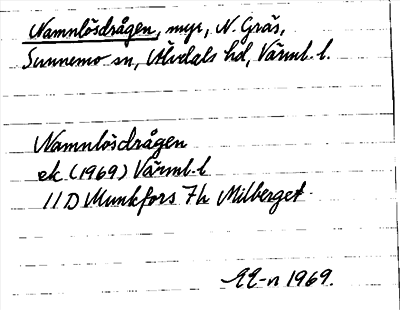 Namnlösdrågen, myr, N. Gräs,
Sunnemo sn, Älvdals hd, Värml. l.
Namnlösdrågen
ek. (1969) Värml. l
11D Munkfors 7h Milberget.
EE-n 1969.